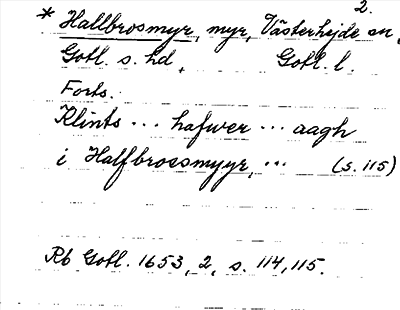 2.
* Hallbrosmyr, myr, Västerhejde sn,
Gotl. s. hd, Gotl. l.
Forts.
Klints ... hafwer ... aagh
i Halfbrossmyyr, ... (s. 115)
Rb Gotl. 1653, 2, s. 114, 115.